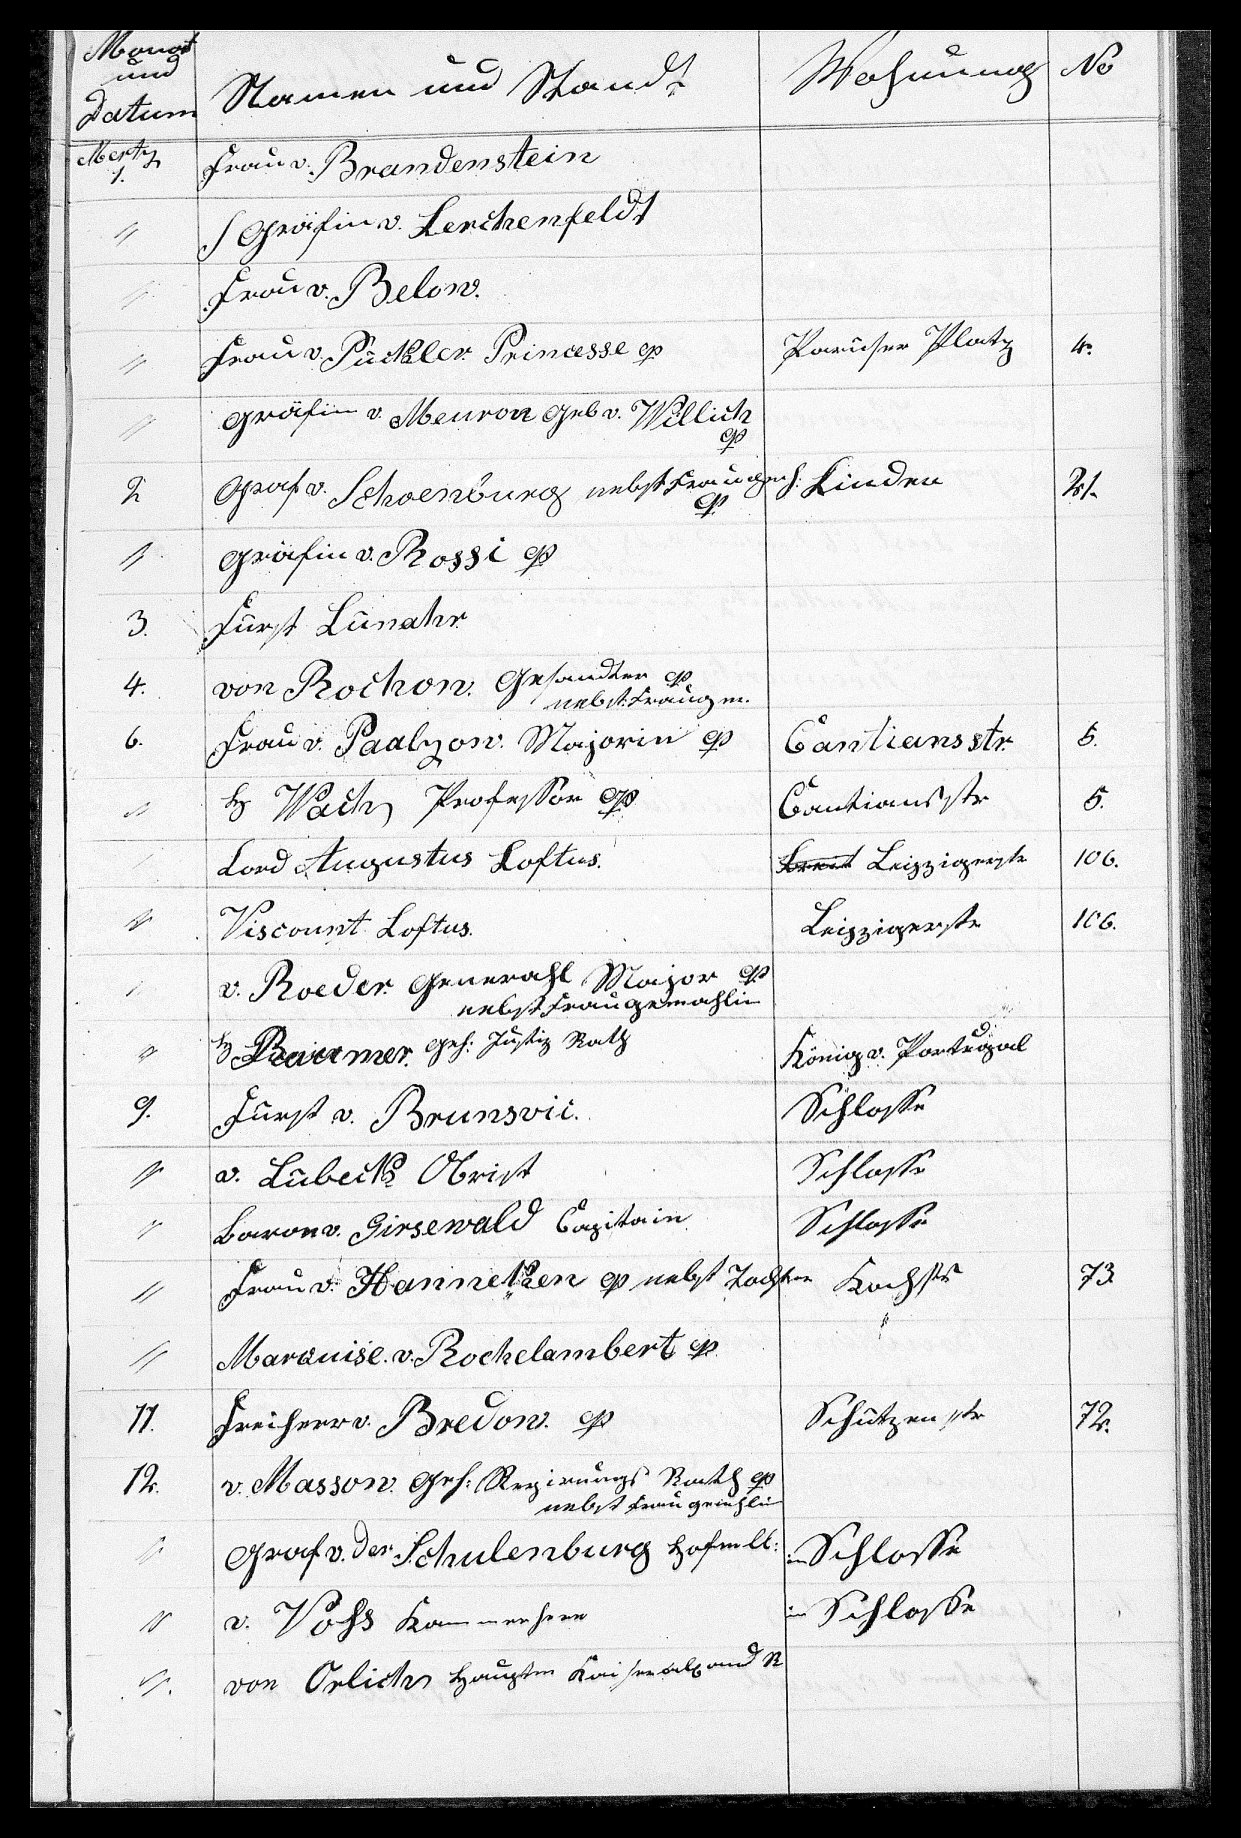 Monat
und
Datum Namen und Standt Wohnung No
Mertz
1. Frau v. Brandenstein
" Gräfin v. Lerchenfeldt
" Frau v. Below.
" Frau v. Pückler Princesse Pariser Platz 4.
" Gräfin v. Meuron geb v. Willich
2 Graf v. Schoenburg nebst Frau gem. Linden 21.
" Gräfin v. Rossi
3. Fürst Lünahr.
4. von Rochow. Gesandter
nebst Frau gem.
6. Frau v. Paalzow. Majorin Cantiansstr. 5.
" H Wach Professor Cantiansstr 5.
" Lord Augustus Loftus. Leipzigerstr 106.
" Viscount Loftus. Leipzigerstr 106.
" v. Roeder. Generahl Major
nebst Frau gemahlin
" H Bäumer. Geh: Justiz Rath König v. Portugal
9. Fürst v. Brunsvic. Schlosse
" v. Lübeck Obrist Schlosse
" Baron v. Girsewald Capitain Schlosse
" Frau v. Hanneken nebst Tochter Kochstr 73
" Marquise. v. Rochelambert
11. Freiherr v. Bredow. Schützenstr 72.
12. v. Masson. Geh: Regierungs Rath
nebst Frau gemahlin
" Graf v. der Schulenburg Hofm im Schlosse
" v. Vohs Kammerherr im Schlosse
" von Orlich Hauptm Kaiser Alexand R